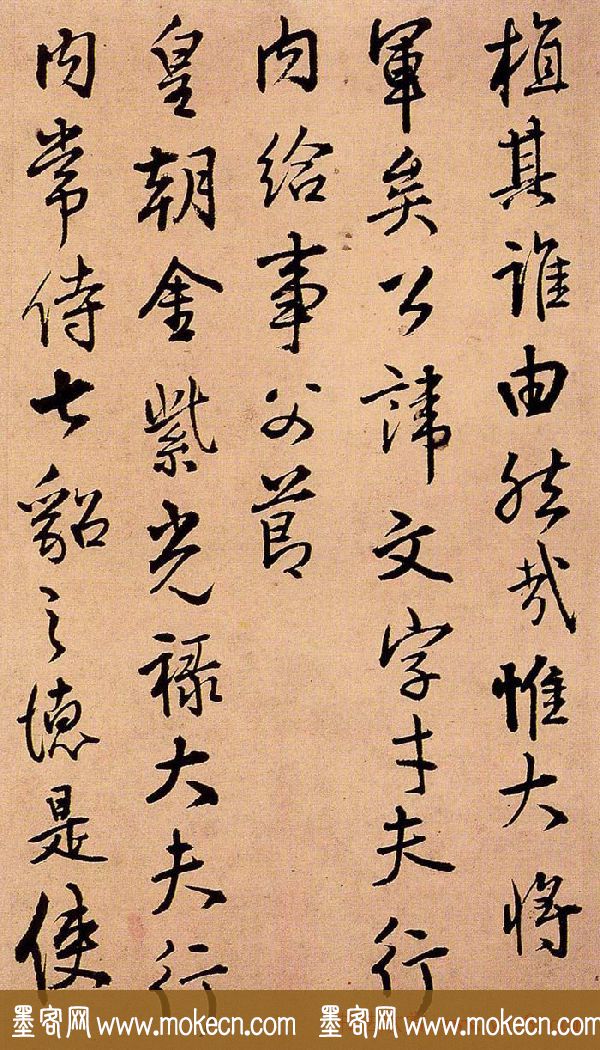 植其誰由然哉惟大将
軍矣公諱文字才夫行
内給事父節
皇朝金紫光祿大夫行
内常侍七貂之德是使
墨客网 www.mokecn.com 墨客网 www.mokecn.com